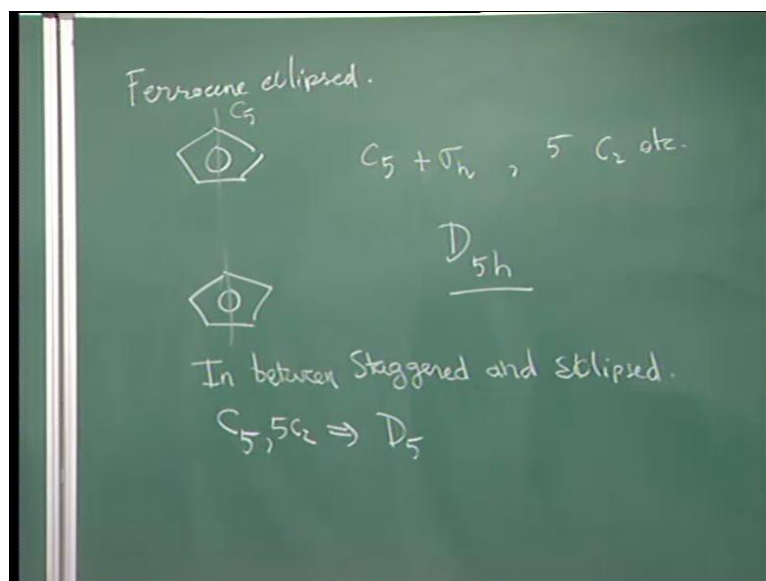 Ferrocene ecllipsed.
C5
C5 + σh , 5 C2 etc.
D5h
In between Staggered and Eclipsed.
C5, 5C2 ⇒ D5